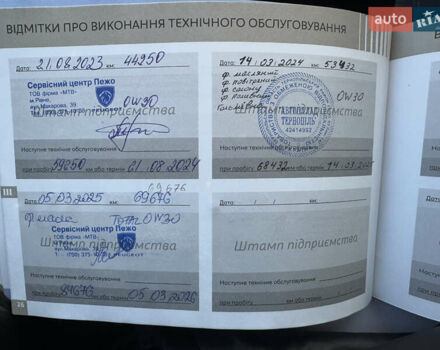 AUTO RIA
ВІДМІТКИ ПРО ВИКОНАННЯ ТЕХНІЧНОГО ОБСЛУГОВУВАННЯ
Дата: 21.08.2023 км: 44250
Сервісний центр Пежо
ТОВ фірма «МТВ»
м.Рівне,
вул.Макарова, 39
0W30
Штамп підприємства
Наступне технічне обслуговування
при пробігу 59650 км або термін 21.08.2024
Дата: 14.03.2024 км: 53432
ф. масляний
ф. повітряний
ф. салону
0W30
ТЕРНОПІЛЬ
42414992
Штамп підприємства
Наступне технічне обслуговування
при пробігу 68432 км або термін 14.03.2025
III
69676
05.03.2025 км: 69676
Total 0W30
Сервісний центр Пежо
ТОВ фірма «МТВ»
Штамп підприємства
PEUGEOT
Наступне технічне обслуговування
при пробігу 84676 км або термін 05.03.2026
Дата: / / км:
Штамп підприємства
Наступне технічне обслуговування
при пробігу км або термін
26